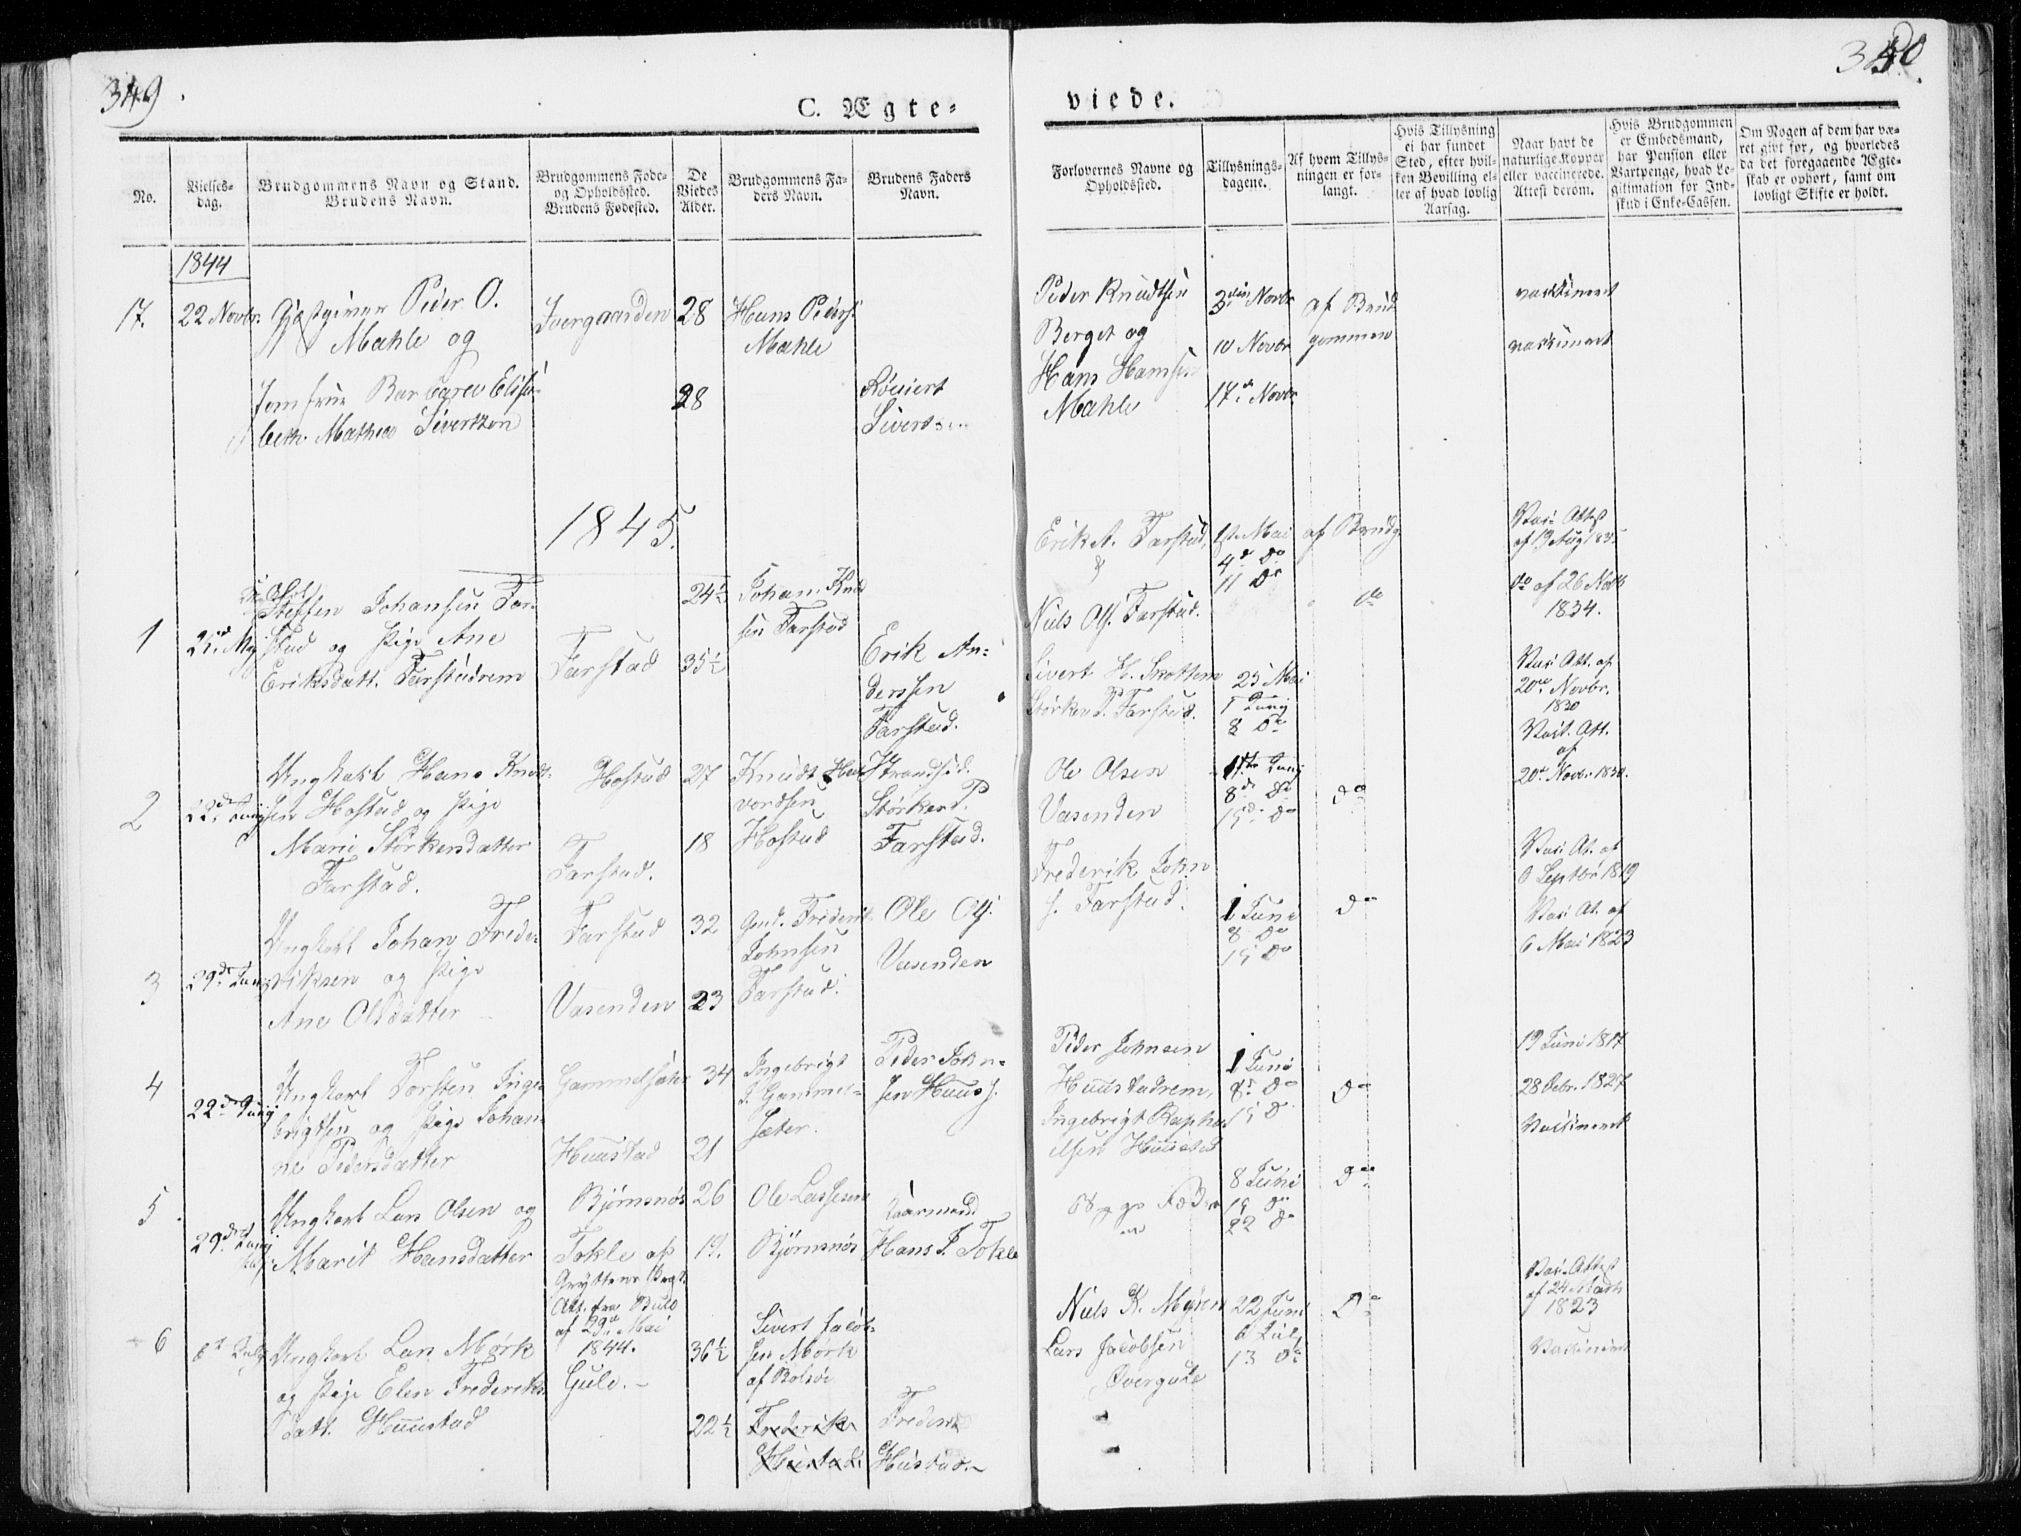 349.
350.
C. Ægte=
viede.
No.
Vielses-
dag.
Brudgommens Navn og Stand.
Brudens Navn.
Brudgommens Føde-
og Opholdssted.
Brudens Fødested.
De
Viedes
Alder.
Brudgommens Fa-
ders Navn.
Brudens Faders
Navn.
Forlovernes Navne og
Opholdssted.
Tillysnings-
dagene.
Af hvem Tillys-
ningen er for-
langt.
Hvis Tillysning
ei har fundet
Sted, efter hvil-
ken Bevilling el-
ler af hvad lovlig
Aarsag.
Naar havt de
naturlige Kopper
eller vaccinerede.
Attest derom.
Hvis Brudgommen
er Embedsmand,
har Pension eller
Vartpenge, hvad Le-
gitimation for Ind-
skud i Enke-Cassen.
Om Nogen af dem har væ-
ret gift før, og hvorledes
da det foregaaende Ægte-
skab er ophørt, samt om
lovligt Skifte er holdt.
1844
17. 22 Novbr. Gjæstgiver Peder O.
Mahle og
Jomfrue Barbara Elisa-
beth Mathea Sivertsen
28 Hans Peders
Mahle
28
Sivertsen
Peder Knudtsen
Berget og
Hans Hansen
Mahle
3die Novbr
10 Novbr
17de Novbr
af Brud
gommen
vaksineret
vaksineret
1845.
1
Steffen Johansen Far-
stad og Pige Ane
Eriksdatt. Farstadrem
Farstad
24½
35½
Johan Knud
sen Farstad
Erik An-
derssen
Farstad.
Erik A. Farstad,
&
Niels Ols. Farstad.
1st Mai
4de Do
11 Do
af Brudg.
do
Vac. Attest
af
do af 26 Novb
1834.
2
22de Junij
Ungkarl Hans Knudt-
sen Hostad og Pige
Marie Størkersdatter
Farstad.
Hostad
Farstad.
27
18
Knudt Hal
vordsen
Hostad
Størker P.
Farstad.
Sivert H.
Størker P. Farstad.
25 Mai
1 Junij
8 Do
Vac. Att. af
20de Novbr.
1830
Vac. Att.
af
20de Novbr 1830.
3
29de Junij
Ungkarl Johan Frede-
riksen og Pige
Ane Olsdatter
Farstad
Vasenden
32
23
Frederik
Johnsen
Farstad.
Ole Ols.
Vasenden
Ole Olsen
Vasenden
Frederik John
s. Farstad.
1ste Junij
8de Do
15de Do
do
Vac. At. af
Septbr 1819
Vac. At. af
6 Mai 1823
1 Juni
8 Do
15 Do
do
4
22de Junij
Ungkarl Torsten Inge-
brigtsen og Pige Johan-
ne Pedersdatter
Gammelsæter
Huustad
34
21
Ingebrigt
T. Gammel-
sæter.
Peder John-
sen Huus s.
Peder Johnsen
Huustadrem,
Ingebrigt Rapha
elsen Huustad
1 Juni
8de Do
15 D
do
19 Juni 1817
28 Febr. 1827
Vaksineret
5
29de Junij
Ungkarl Lars Olsen og
Marit Hansdatter
Bjørnsnøs
Tokle af
Gryttens Præst.
Att. fra Bull
af 29de Mai
1844.
26
19.
Ole Lassesen
Bjørnsnøs
Gaarmand
Hans J. Tokle
Begge Fædre
8 Juni
15 Do
22 Do
do
6
6te Julij
Ungkarl Lars Mørk
og Pige Elen Frederiks
datt. Huustad
Gule.
36½
22½
Sivert Jacob-
sen Mørk
af Bolsøe
Frederik
Huustad.
Frederik
Hustad.
Niels K. Myren
Lars Jacobsen
Overgule
22 Juni
6 Julij
13 Do
Do
Vac. Attest
af 24 Marts
1823
Vaksineret